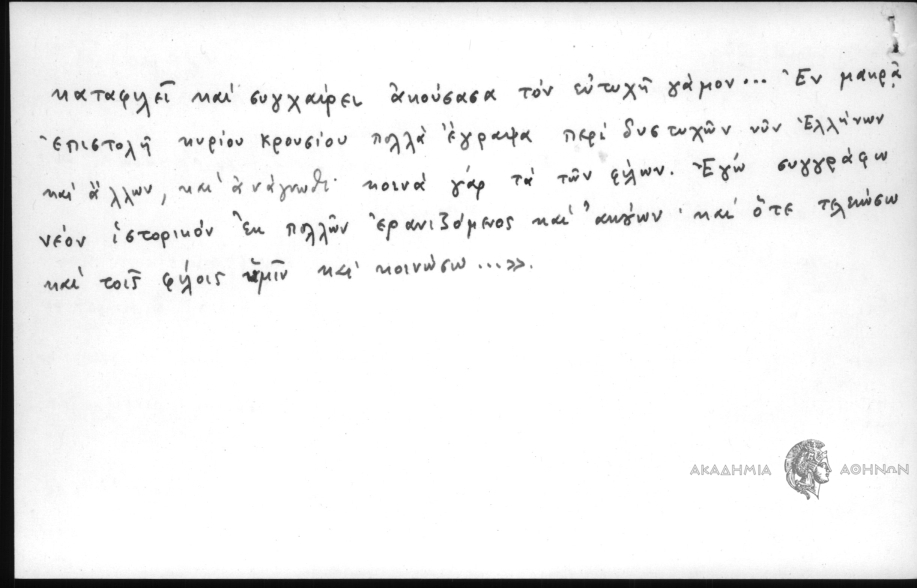 καταφιλεῖ καὶ συγχαίρει ἀκούσασα τὸν εὐτυχῆ γάμον... Ἐν μακρᾷ
ἐπιστολῇ κυρίου Κρουσίου πολλὰ ἔγραψα περὶ δυστυχῶν νῦν Ἑλλήνων
καὶ ἄλλων, καὶ ἀνάγνωθι· κοινὰ γὰρ τὰ τῶν φίλων. Ἐγὼ συγγράφω
νέον ἱστορικὸν ἐκ πολλῶν ἐρανιζόμενος καὶ ἀκούων· καὶ ὅτε τελειώσω
καὶ τοῖς φίλοις ὑμῖν καὶ κοινώσω...».
ΑΚΑΔΗΜΙΑ ΑΘΗΝΩΝ